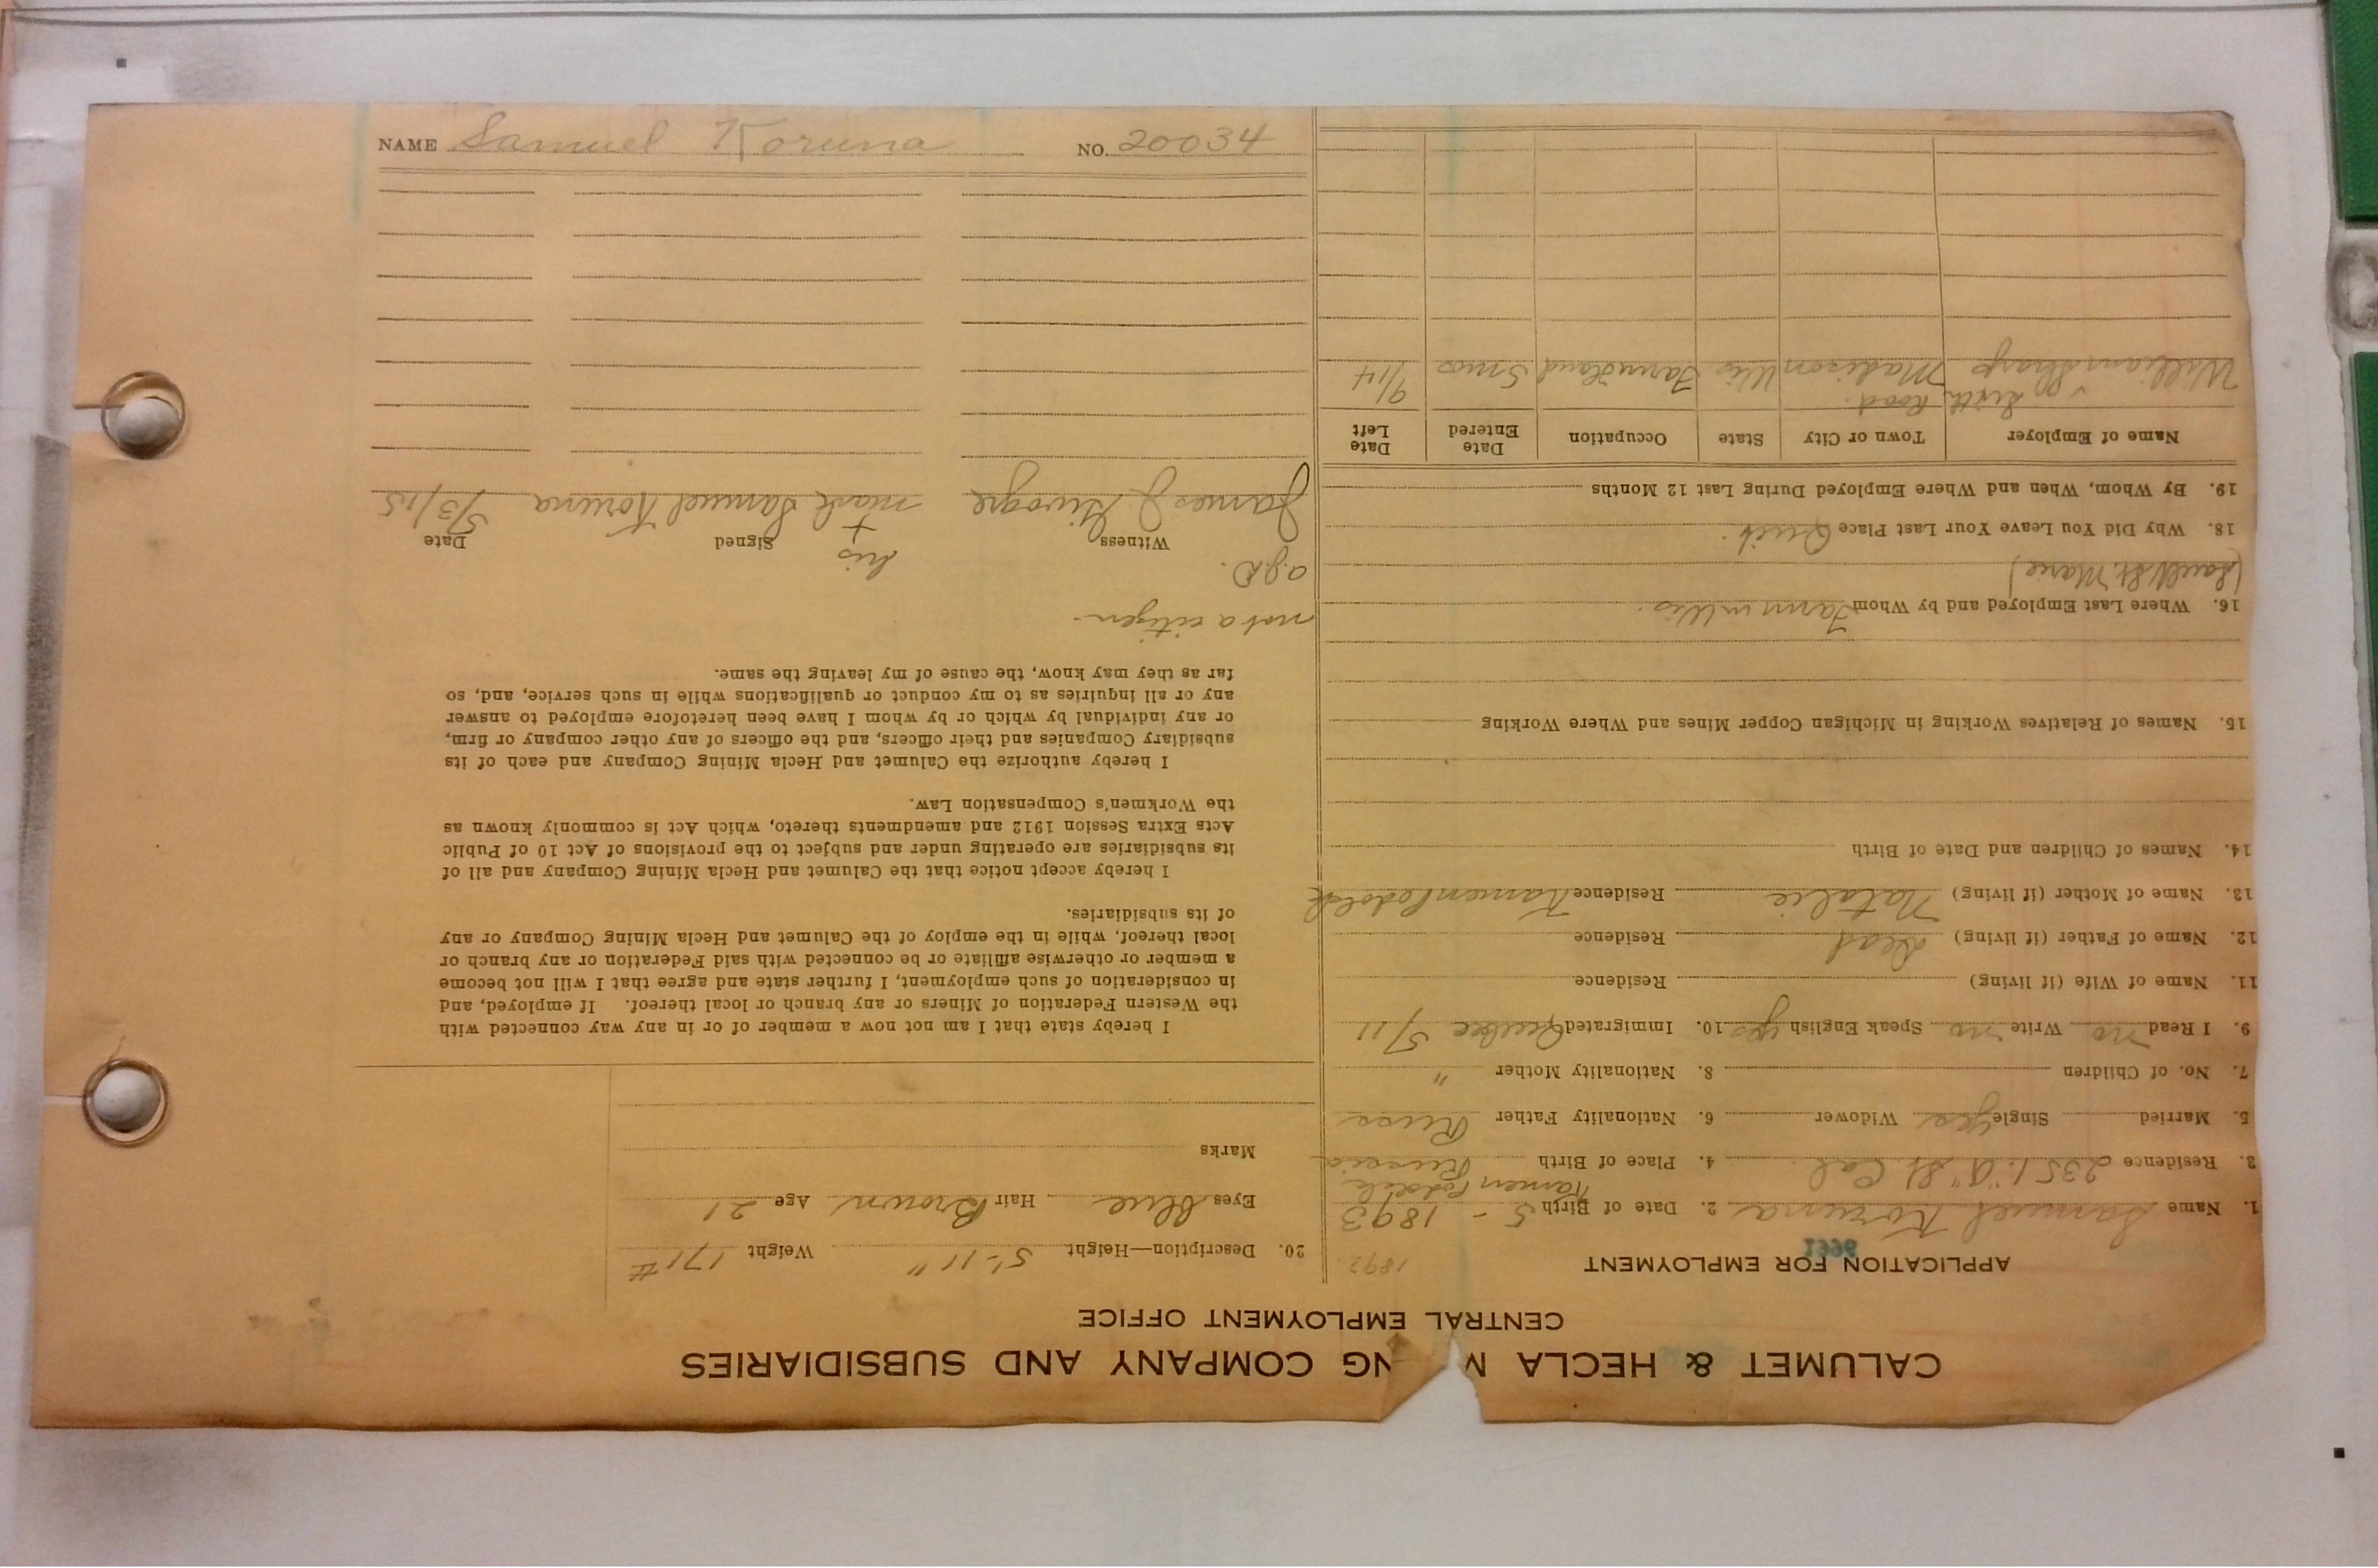 CALUMET & HECLA M NG COMPANY AND SUBSIDIARIES
CENTRAL EMPLOYMENT OFFICE
APPLICATION FOR EMPLOYMENT
1996
1892
1. Name Samuel Koruna 2. Date of Birth 5 - 1893
Kamen Podolsk
3. Residence 2351 "A" St Cal. 4. Place of Birth Russia
5. Married Single yes Widower 6. Nationality Father Russ
7. No. of Children 8. Nationality Mother "
9. I Read no Write no Speak English yes 10. Immigrated Quebec 5/11
11. Name of Wife (if living) Residence
12. Name of Father (if living) Dead Residence
13. Name of Mother (if living) Natalie Residence Kamen Podolsk
14. Names of Children and Date of Birth
15. Names of Relatives Working in Michigan Copper Mines and Where Working
16. Where Last Employed and by Whom Farm in Wis.
(Sault St. Marie)
18. Why Did You Leave Your Last Place Quit.
19. By Whom, When and Where Employed During Last 12 Months
Name of Employer Town or City State Occupation Date Entered Date Left
Road.
William Sharp Madison Wis Farm Hand 5 mos 9/14
20. Description—Height 5'-11" Weight 171 #
Eyes blue Hair Brown Age 21
Marks
I hereby state that I am not now a member of or in any way connected with
the Western Federation of Miners or any branch or local thereof. If employed, and
in consideration of such employment, I further state and agree that I will not become
a member or otherwise affiliate or be connected with said Federation or any branch or
local thereof, while in the employ of the Calumet and Hecla Mining Company or any
of its subsidiaries.
I hereby accept notice that the Calumet and Hecla Mining Company and all of
its subsidiaries are operating under and subject to the provisions of Act 10 of Public
Acts Extra Session 1912 and amendments thereto, which Act is commonly known as
the Workmen's Compensation Law.
I hereby authorize the Calumet and Hecla Mining Company and each of its
subsidiary Companies and their officers, and the officers of any other company or firm,
or any individual by which or by whom I have been heretofore employed to answer
any or all inquiries as to my conduct or qualifications while in such service, and, so
far as they may know, the cause of my leaving the same.
not a citizen
his
Witness Signed Date
James J. + mark Samuel Koruna 5/3/15
NAME Samuel Koruna NO. 20034